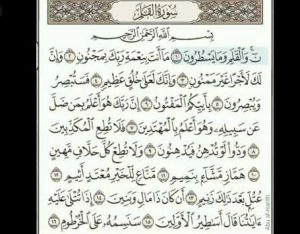 سُورَةُ القَلَمِ
بِسْمِ ٱللَّهِ ٱلرَّحْمَٰنِ ٱلرَّحِيمِ
نٓ ۚ وَٱلْقَلَمِ وَمَا يَسْطُرُونَ ١ مَآ أَنتَ بِنِعْمَةِ رَبِّكَ بِمَجْنُونٍ ٢ وَإِنَّ
لَكَ لَأَجْرًا غَيْرَ مَمْنُونٍ ٣ وَإِنَّكَ لَعَلَىٰ خُلُقٍ عَظِيمٍ ٤ فَسَتُبْصِرُ
وَيُبْصِرُونَ ٥ بِأَييِّكُمُ ٱلْمَفْتُونُ ٦ إِنَّ رَبَّكَ هُوَ أَعْلَمُ بِمَن ضَلَّ
عَن سَبِيلِهِۦ وَهُوَ أَعْلَمُ بِٱلْمُهْتَدِينَ ٧ فَلَا تُطِعِ ٱلْمُكَذِّبِينَ
٨ وَدُّوا۟ لَوْ تُدْهِنُ فَيُدْهِنُونَ ٩ وَلَا تُطِعْ كُلَّ حَلَّافٍ مَّهِينٍ
١٠ هَمَّازٍ مَّشَّآءٍۭ بِنَمِيمٍ ١١ مَّنَّاعٍ لِّلْخَيْرِ مُعْتَدٍ أَثِيمٍ ١٢
عُتُلٍّۭ بَعْدَ ذَٰلِكَ زَنِيمٍ ١٣ أَن كَانَ ذَا مَالٍ وَبَنِينَ ١٤ إِذَا تُتْلَىٰ عَلَيْهِ
ءَايَٰتُنَا قَالَ أَسَٰطِيرُ ٱلْأَوَّلِينَ ١٥ سَنَسِمُهُۥ عَلَى ٱلْخُرْطُومِ ١٦